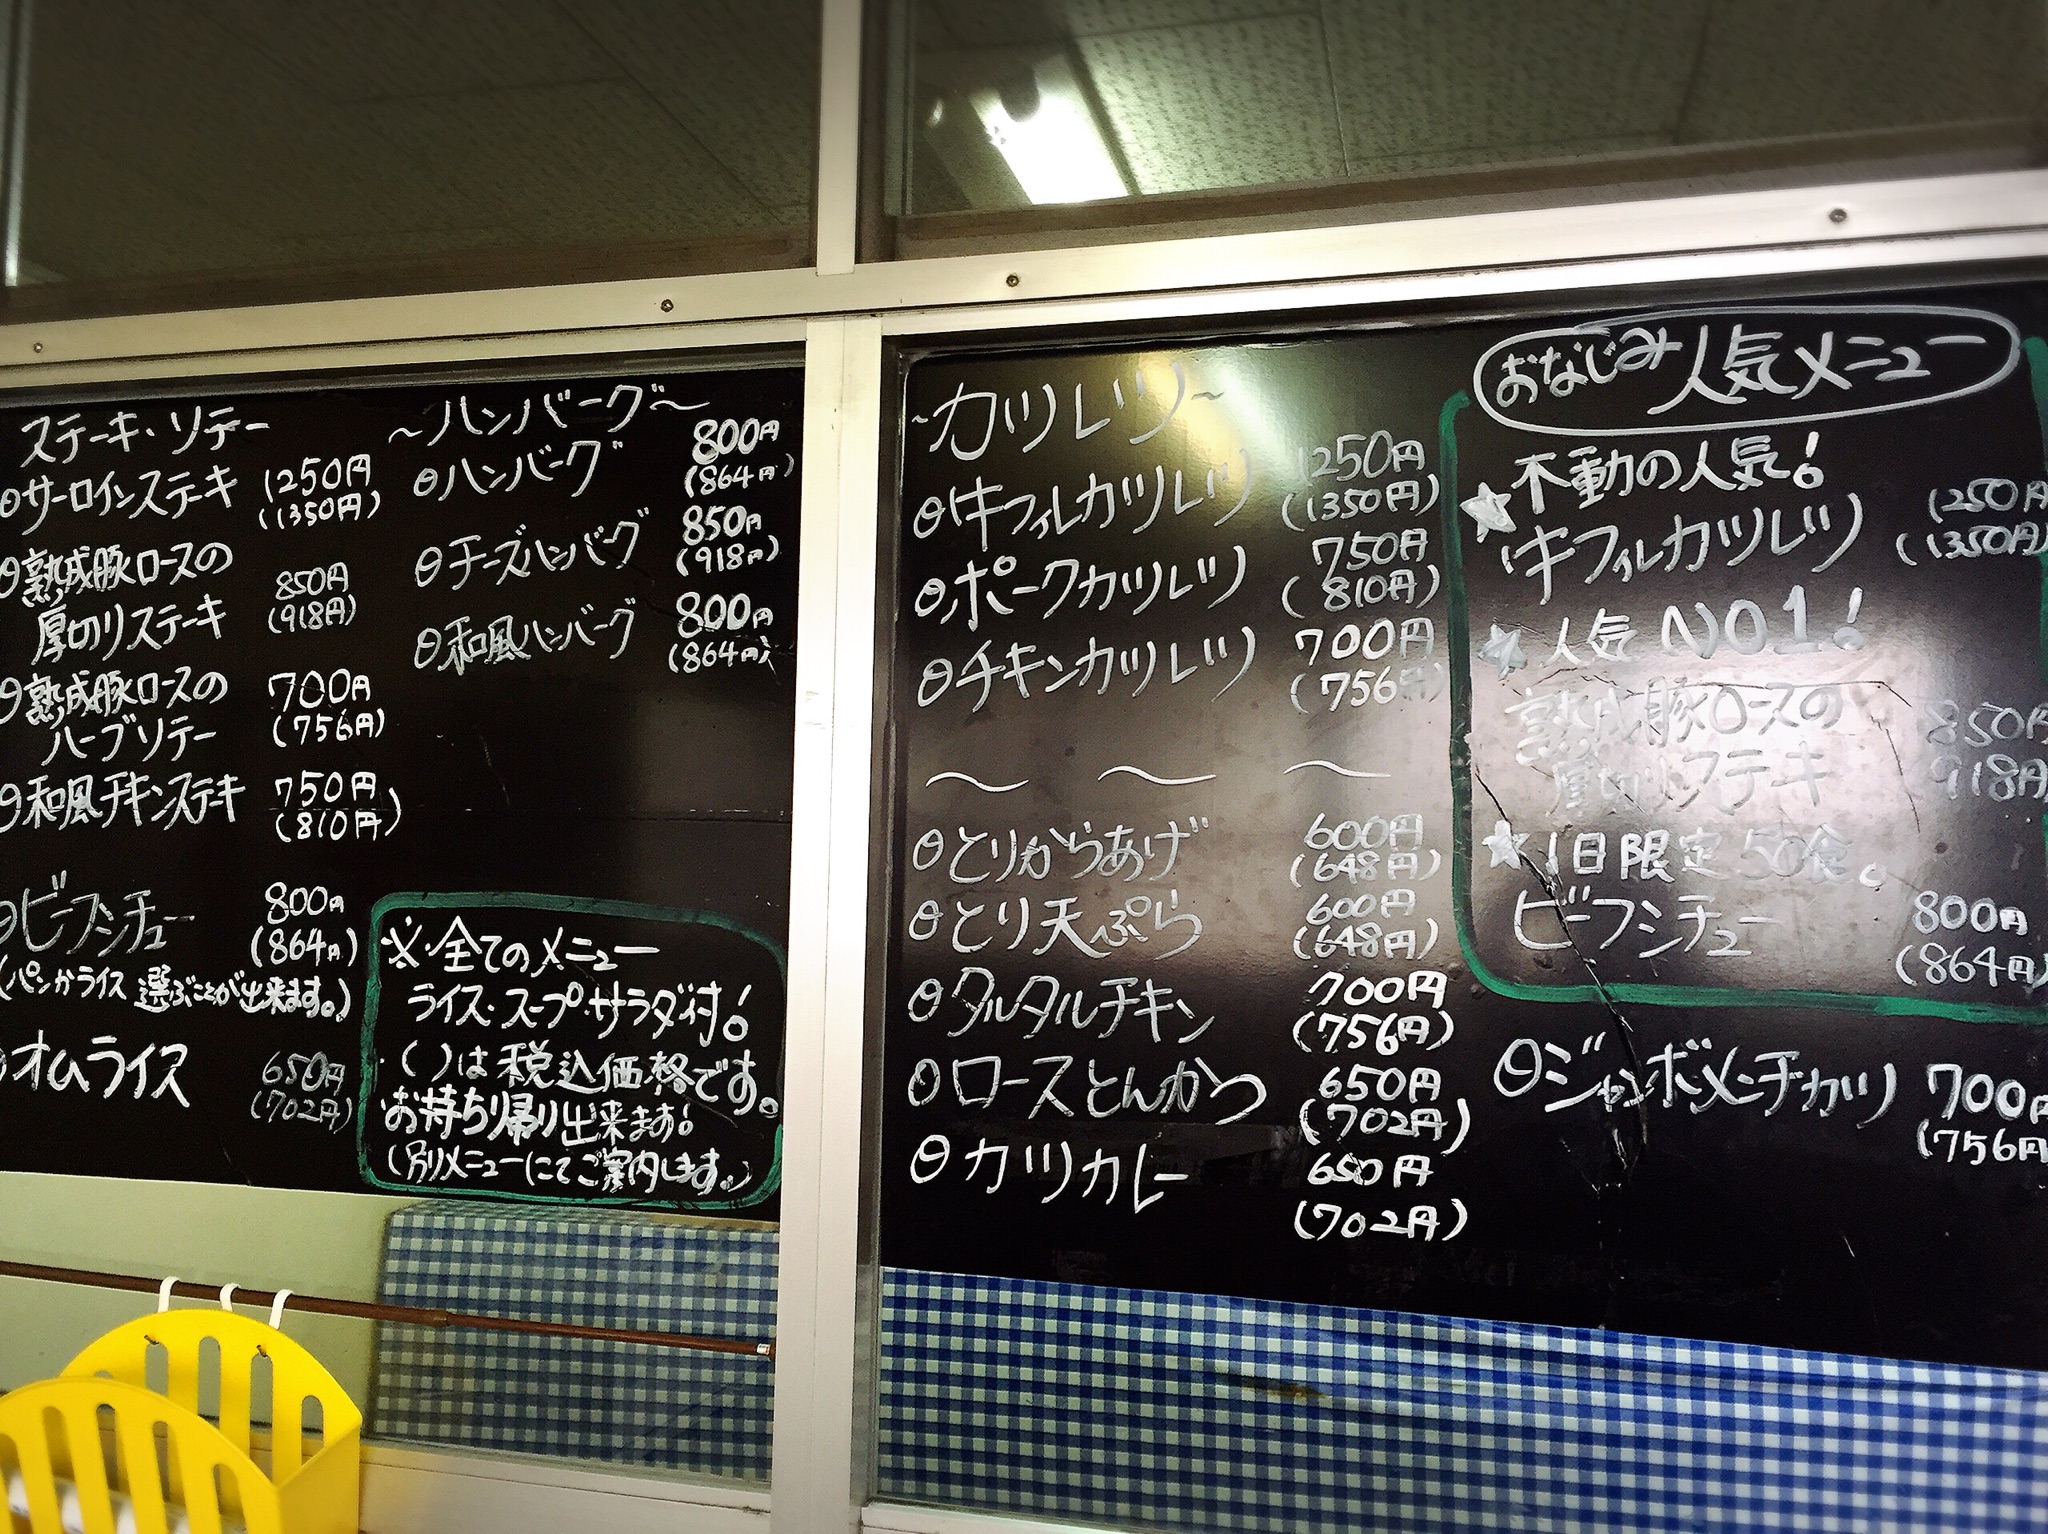 ステーキ・ソテー
サーロインステーキ 1250円
(1350円)
熟成豚ロースの
厚切りステーキ 850円
(918円)
熟成豚ロースの 700円
ハーブソテー (756円)
和風チキンステーキ 750円
(810円)
ビーフシチュー 800円
(864円)
(パンかライス選ぶことが出来ます。)
オムライス 650円
(702円)
～ハンバーグ～
ハンバーグ 800円
(864円)
チーズハンバーグ 850円
(918円)
和風ハンバーグ 800円
(864円)
※全てのメニュー
ライス・スープ・サラダ付!
( )は税込価格です。
お持ち帰り出来ます!
(別メニューにてご案内します。)
～カツレツ～
牛フィレカツレツ 1250円
(1350円)
ポークカツレツ 750円
(810円)
チキンカツレツ 700円
(756円)
～ ～ ～
とりからあげ 600円
(648円)
とり天ぷら 600円
(648円)
タルタルチキン 700円
(756円)
ロースとんかつ 650円
(702円)
カツカレー 650円
(702円)
おなじみ人気メニュー
★不動の人気!
牛フィレカツレツ 1250円
(1350円)
★人気NO1!
熟成豚ロースの 850円
厚切りステーキ 918円
★1日限定50食。
ビーフシチュー 800円
(864円)
ジャンボメンチカツ 700円
(756円